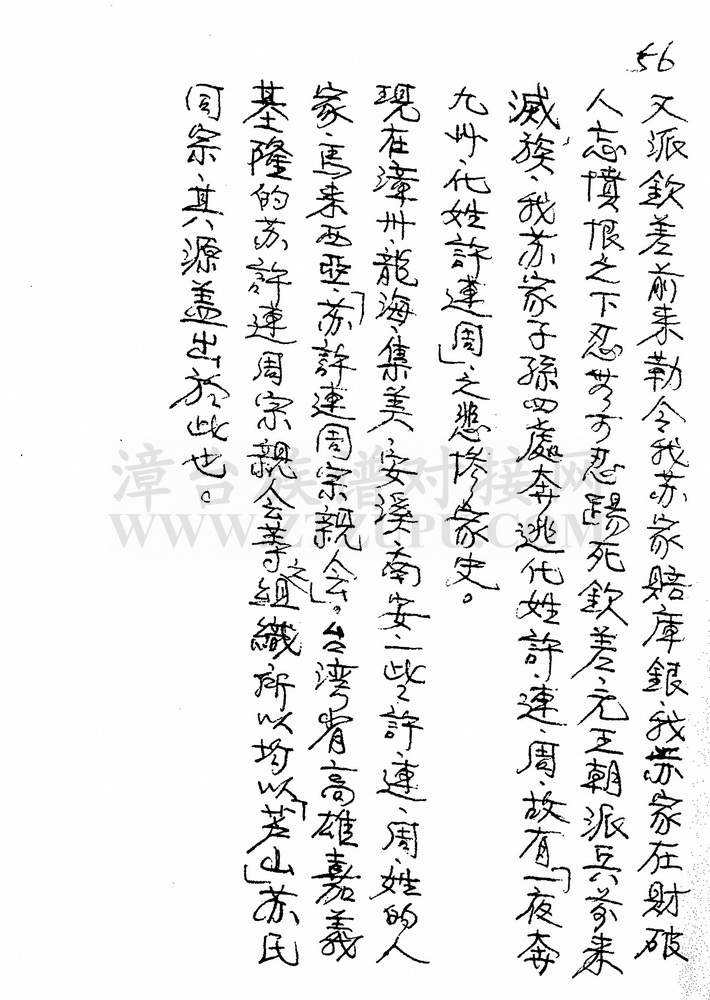 56
又派欽差前来勒令我苏家賠庫銀、我苏家在財破
人忘憤恨之下忍無可忍踢死欽差、元王朝派兵前来
滅族、我苏家子孫四處奔逃化姓許、連、周、故有「一夜奔
九州、化姓許連周」之悲惨家史。
現在漳州、龍海、集美、安溪、南安一些許、連、周姓的人
家、馬来西亞、「苏許連周宗親会」。台湾省高雄嘉義
基隆的苏許連周宗親会等之組織所以均以「芦山」苏氏
同宗、其源盖出於此也。
漳台族谱对接网
WWW.ZTZUPU.COM